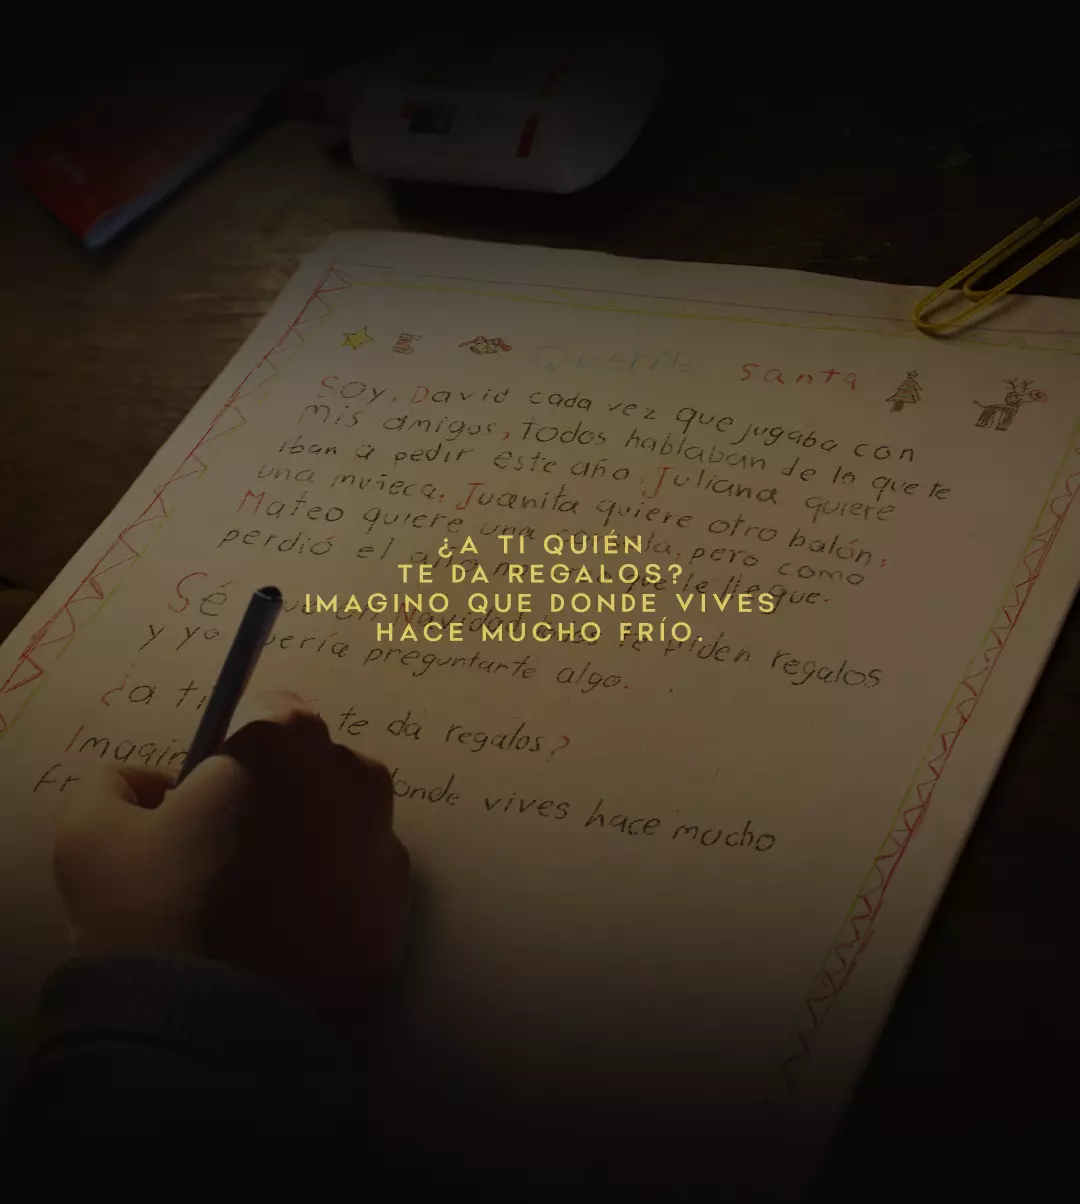 Querido Santa
Soy, David cada vez que jugaba con
mis amigos, todos hablaban de lo que te
iban a pedir este año, Juliana quiere
una muñeca, Juanita quiere otro balón,
Mateo quiere una pero como
perdió el año no que le llegue.
Sé que en Navidad te piden regalos
y yo preguntarte algo.
¿a ti te da regalos?
Imagin donde vives hace mucho
fr
¿A TI QUIÉN
TE DA REGALOS?
IMAGINO QUE DONDE VIVES
HACE MUCHO FRÍO.